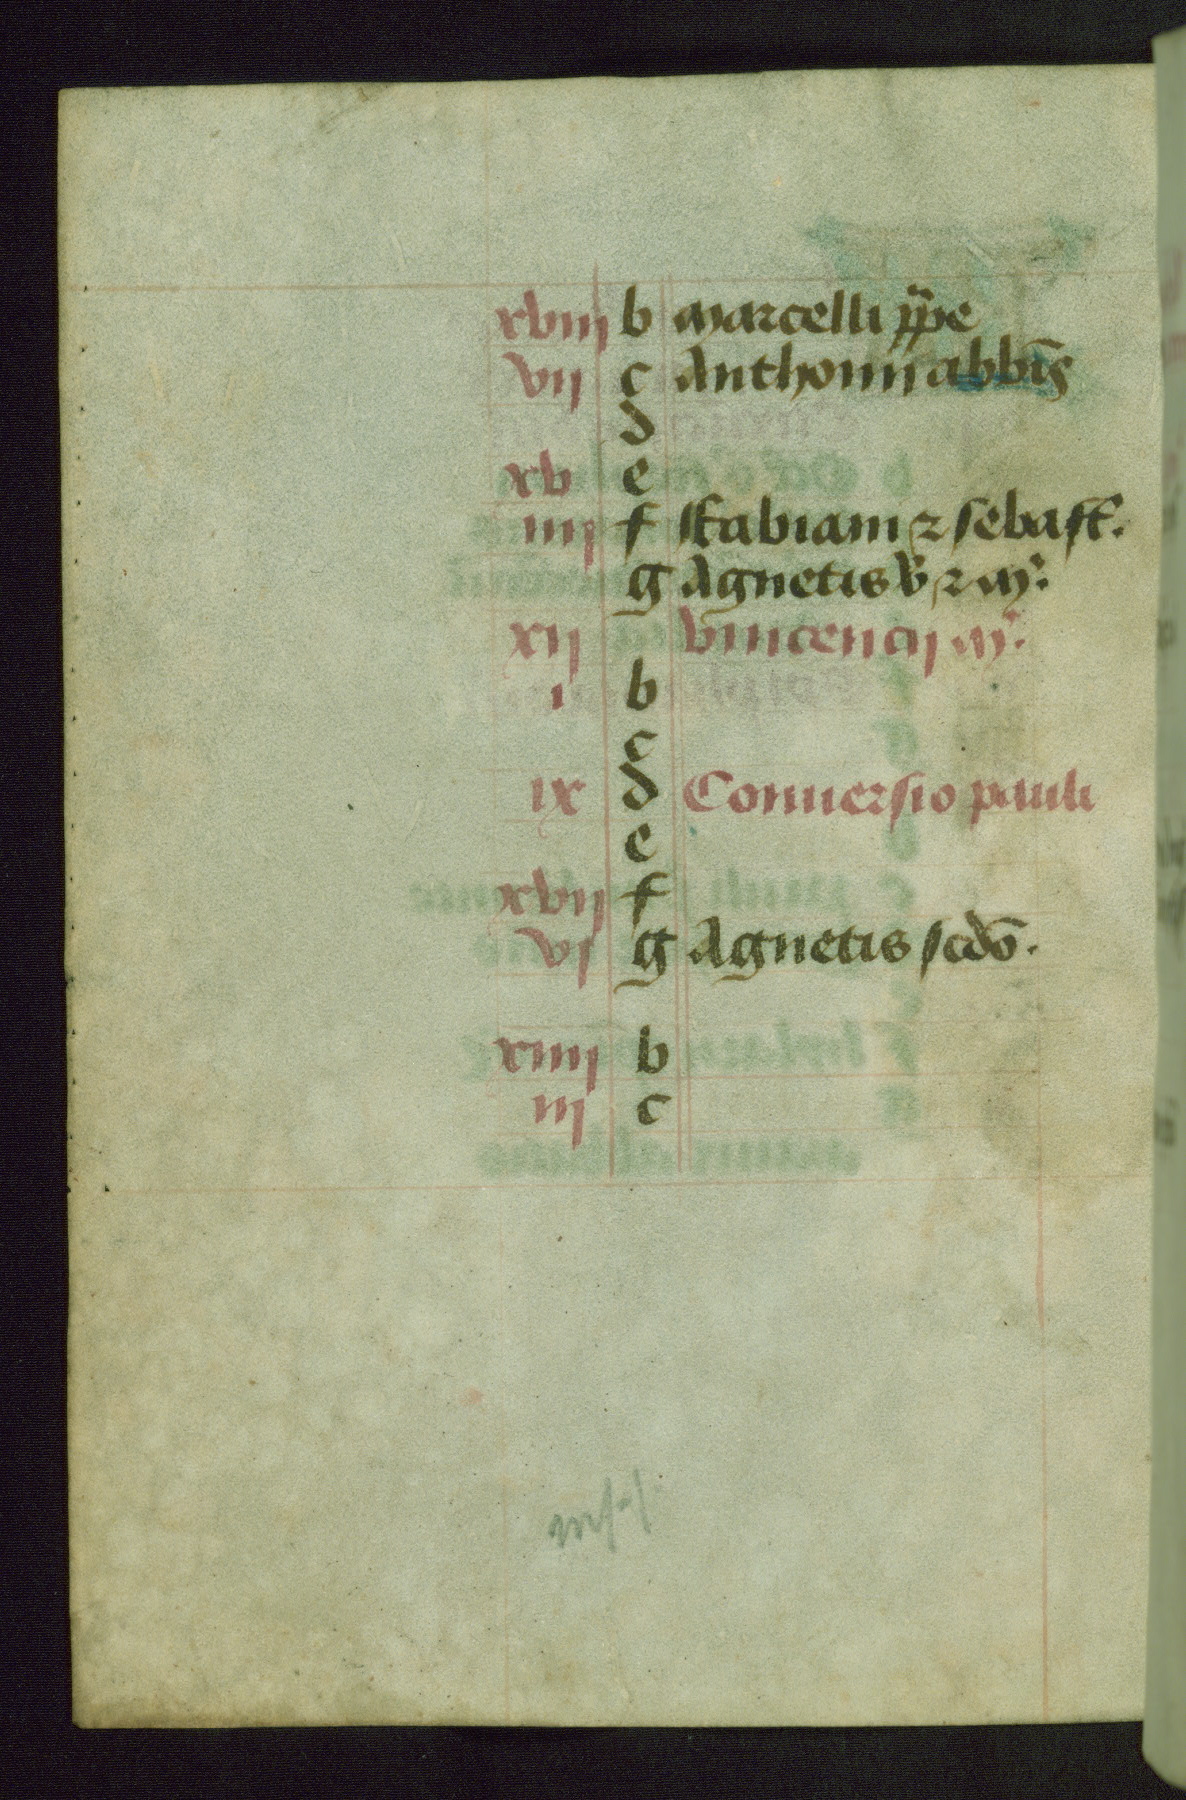 xviij b marcelli ppe
vij c Anthonij abbis
d
xv e
iiij f ffabiani ⁊ sebast.
g Agnetis v̉ ⁊ mr̉.
xij vincencij mr̉.
i b
c
ix d Conuersio pauli
e
xvij f
vj g Agnetis scdō.
xiiij b
iij c